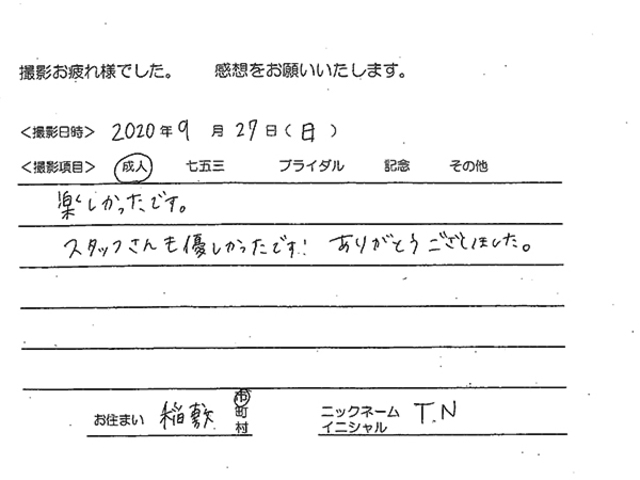 撮影お疲れ様でした。 感想をお願いいたします。
<撮影日時> 2020年9月27日(日)
<撮影項目> 成人 七五三 ブライダル 記念 その他
楽しかったです。
スタッフさんも優しかったです! ありがとうございました。
お住まい 稲敷 市 町 村 ニックネーム イニシャル T.N